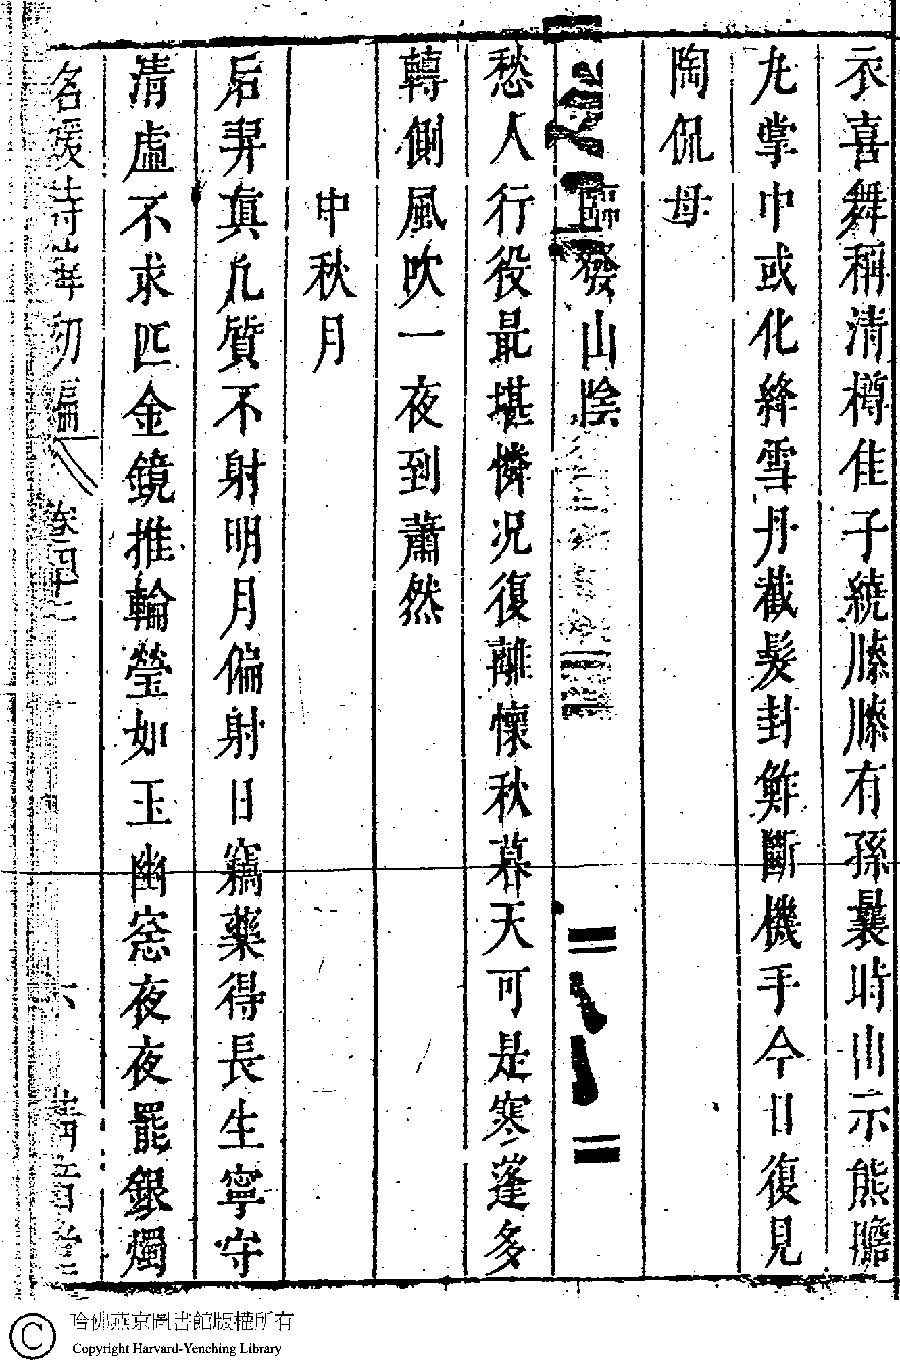 衣喜舞稱清樽佳子繞膝膝有孫曩時曲示熊膽
丸掌中或化絳雪丹截髮封鮓斷機手今日復見
陶侃母
臨發山陰
愁人行役最堪憐况復離懷秋暮天可是寒蓬多
轉側風吹一夜到蕭然
中秋月
后羿真凡質不射明月偏射日竊藥得長生寧守
清虛不求匹金鏡推輪瑩如玉幽窓夜夜罷銀燭
名媛詩緯初編 卷四十二 六 清音堂
哈佛燕京圖書館版權所有
Copyright Harvard-Yenching Library